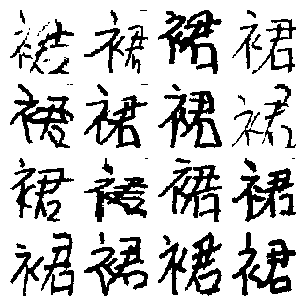 裙裙裙裙
裙裙裙裙
裙裙裙裙
裙裙裙裙